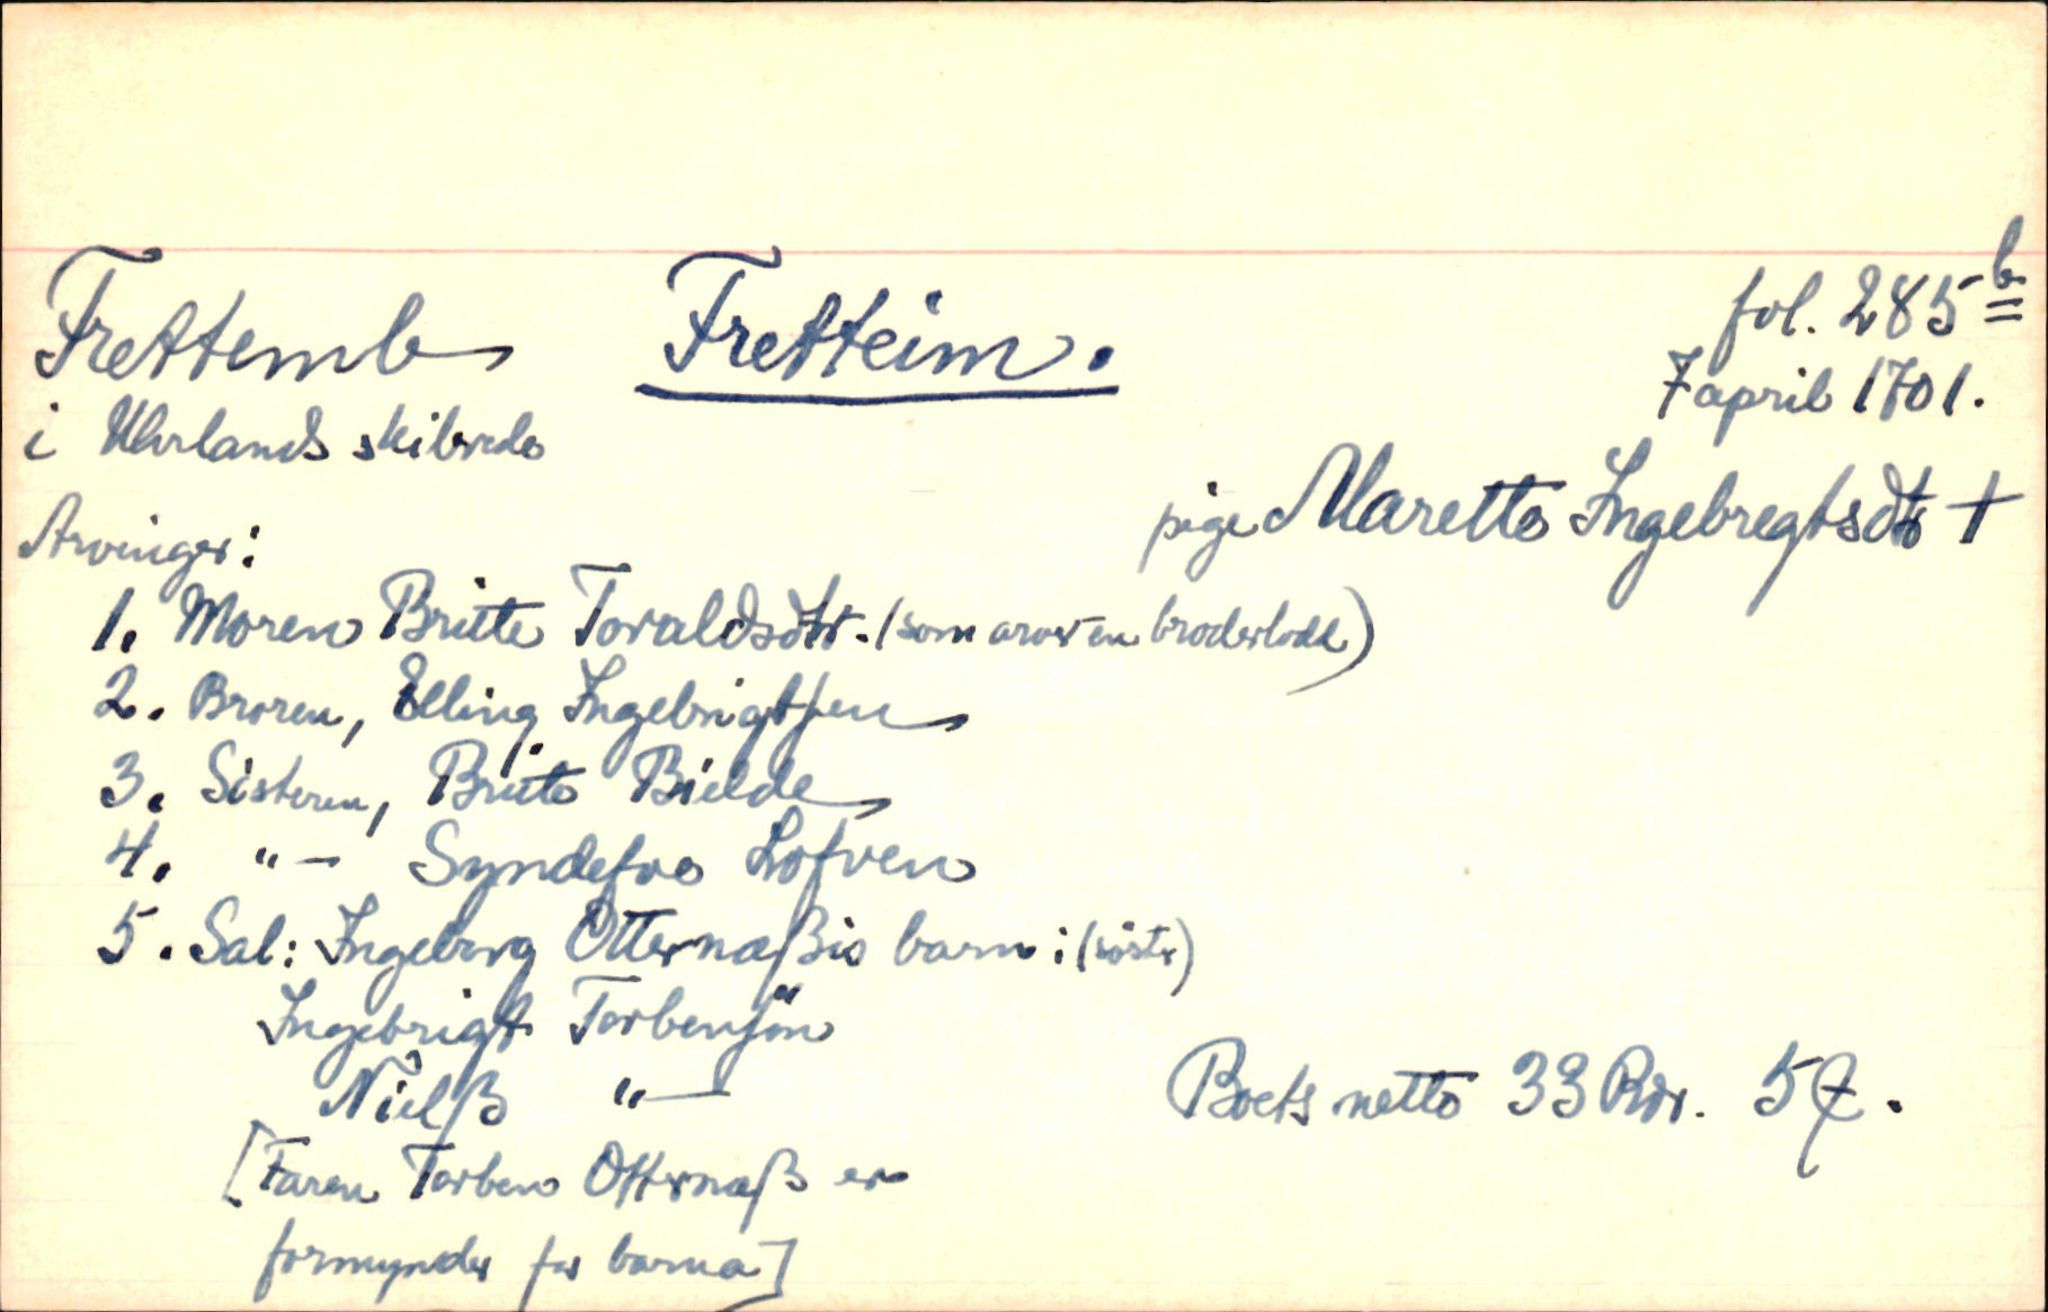 Frettemb Fretteim. fol. 285 b
i Uhrlands skibrede 7 april 1701.
pige Marette Ingebregtsdtr †
Arvinger:
1. Moren Britte Toraldsdtr. (som arver en broderlodd)
2. Broren, Elling Ingebrigtsen
3. Sisteren, Britte Bielde
4. "— Syndefve Lofven
5. Sal: Ingeborg Otternæßis barn: (söster)
Ingebrigt Torbensön
Nielß "—
Boets netto 33 Rdr. 5
[Faren Torben Otternæß er
formynder for barna]